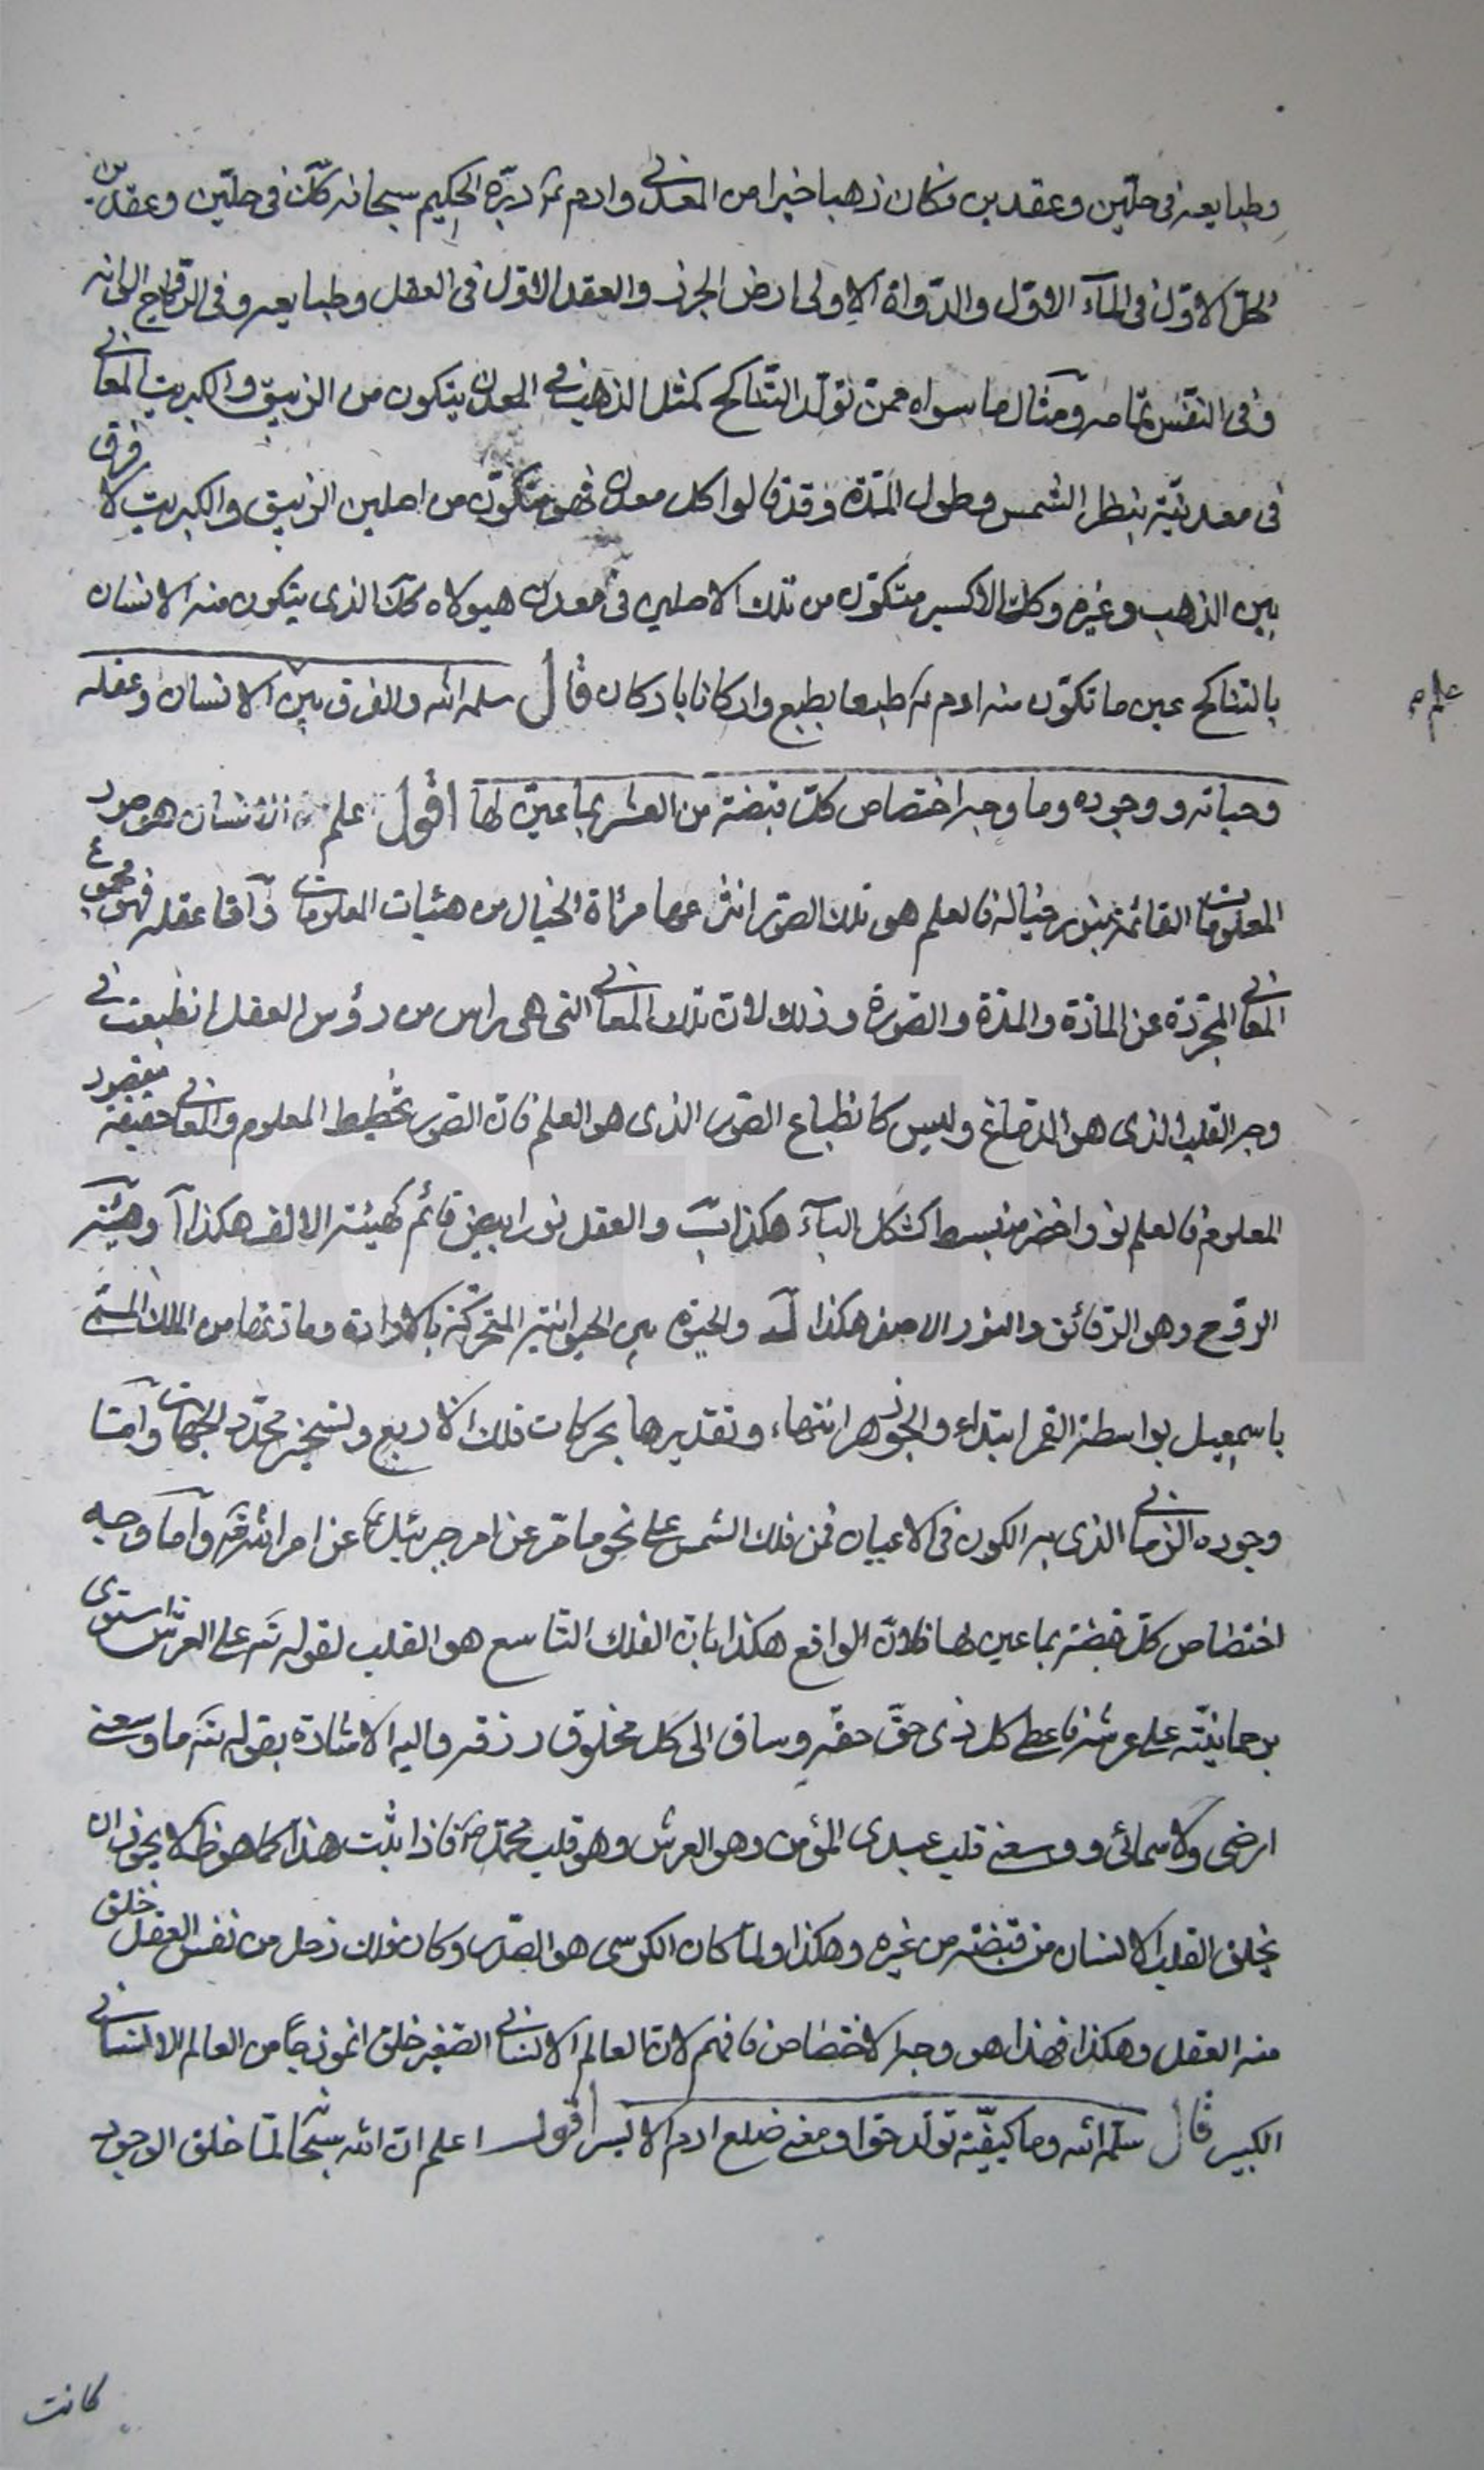 وطبايعه في حلّين وعقدين فكان ذهبا خيرا من المعدنى وادم ع دبّره الحكيم سبحانه كك فى حلّين وعقدين
الحل الاوّل فى المآء الاوّل والدّواة الاولى ارض الجرز والعقد الاوّل فى العقل وطبايعه وفى الرقايق الى انه
وفى النفس تمامه ومثال ما سواه ممن تولّد بالتناكح كمثل الذهب فى المعدن يتكون من الزيبق والكبريت المعانى
فى معدنيّته بنظر الشمس وطول المدّة وقد قالوا كل معدن فهو متكوّن من اصلين الزيبق والكبريت لا فرق
بين الذهب وغيره وكك الاكسير متكوّن من تلك الاصلين فى معدن هيولاه كك الذى يتكون منه الانسان
بالتناكح عين ما تكوّن منه ادم ع طبعا بطبع واركانا باركان قال سلمه الله والفرق بين الانسان وعقله
علمه
وحياته ووجوده وما وجه اختصاص كلّ قبضة من العشر بما عيّن لها اقول علم الانسان هو صور
المعلومات القائمة بنور خياله فالعلم هو تلك الصّور انتزعها مرئاة الخيال من هيئات المعلومات وآمّا عقله فهو مجموع
المعانى المجرّدة عن المادّة والمدّة والصّورة وذلك لان تلك المعانى التى هى راس من رؤس العقل انطبعت فى
وجه القلب الذى هو الدماغ وليس كانطباع الصّور الذى هو العلم فان الصّور تخطيط المعلوم والمعانى حقيقة مقصود
المعلوم فالعلم نور اخضر منبسط كشكل البآء هكذا ب والعقل نور ابيض قائم كهيئة الالف هكذا آ وهيئة
الروّح وهو الرّقائق والنور الاصفر هكذا والحيوة هى الحيوانية المتحركة بالارادة ومادّتها من الملك المسمّى
باسمعيل بواسطة القمر ابتداء والجوزهر انتهاء وتقديرها بحركات فلك الاربع وتسخير محدّد الجهات وآمّا
وجوده الزمانى الذى به الكون فى الاعيان فمن فلك الشمس على نحو ما مرّ عن امر جبرئيل ع عن امر الله تعالى وآما وجه
اختصاص كلّ قبضة بما عين لها فلانّ الواقع هكذا بانّ الفلك التاسع هو القلب لقوله تعالى على العرش استوى
برحمانيّته على عرشه فاعطى كل ذى حقّ حقّه وساق الى كل مخلوق رزقه واليه الاشارة بقوله تعالى ما وسعنى
ارضى ولا سمائى ووسعنى قلب عبدى المؤمن وهو العرش وهو قلب محمّد ص فاذا ثبت هذا كما هو ظ لا يجوز ان
يخلق القلب الانسان من قبضته من غيره وهكذا ولمّا كان الكرسى هو الصّدر وكان فلك زحل من نفس العقل خلق
منه العقل وهكذا فهذا هو وجه الاختصاص فافهم لان العالم الانسانى الصّغير خلق انموذجاً من العالم الانسانى
الكبير قال سلّمه الله وما كيفيّة تولّد حوّا ومعنى ضلع ادم الايسر اقول اعلم ان الله سبحانه لمّا خلق الوجود
كانت